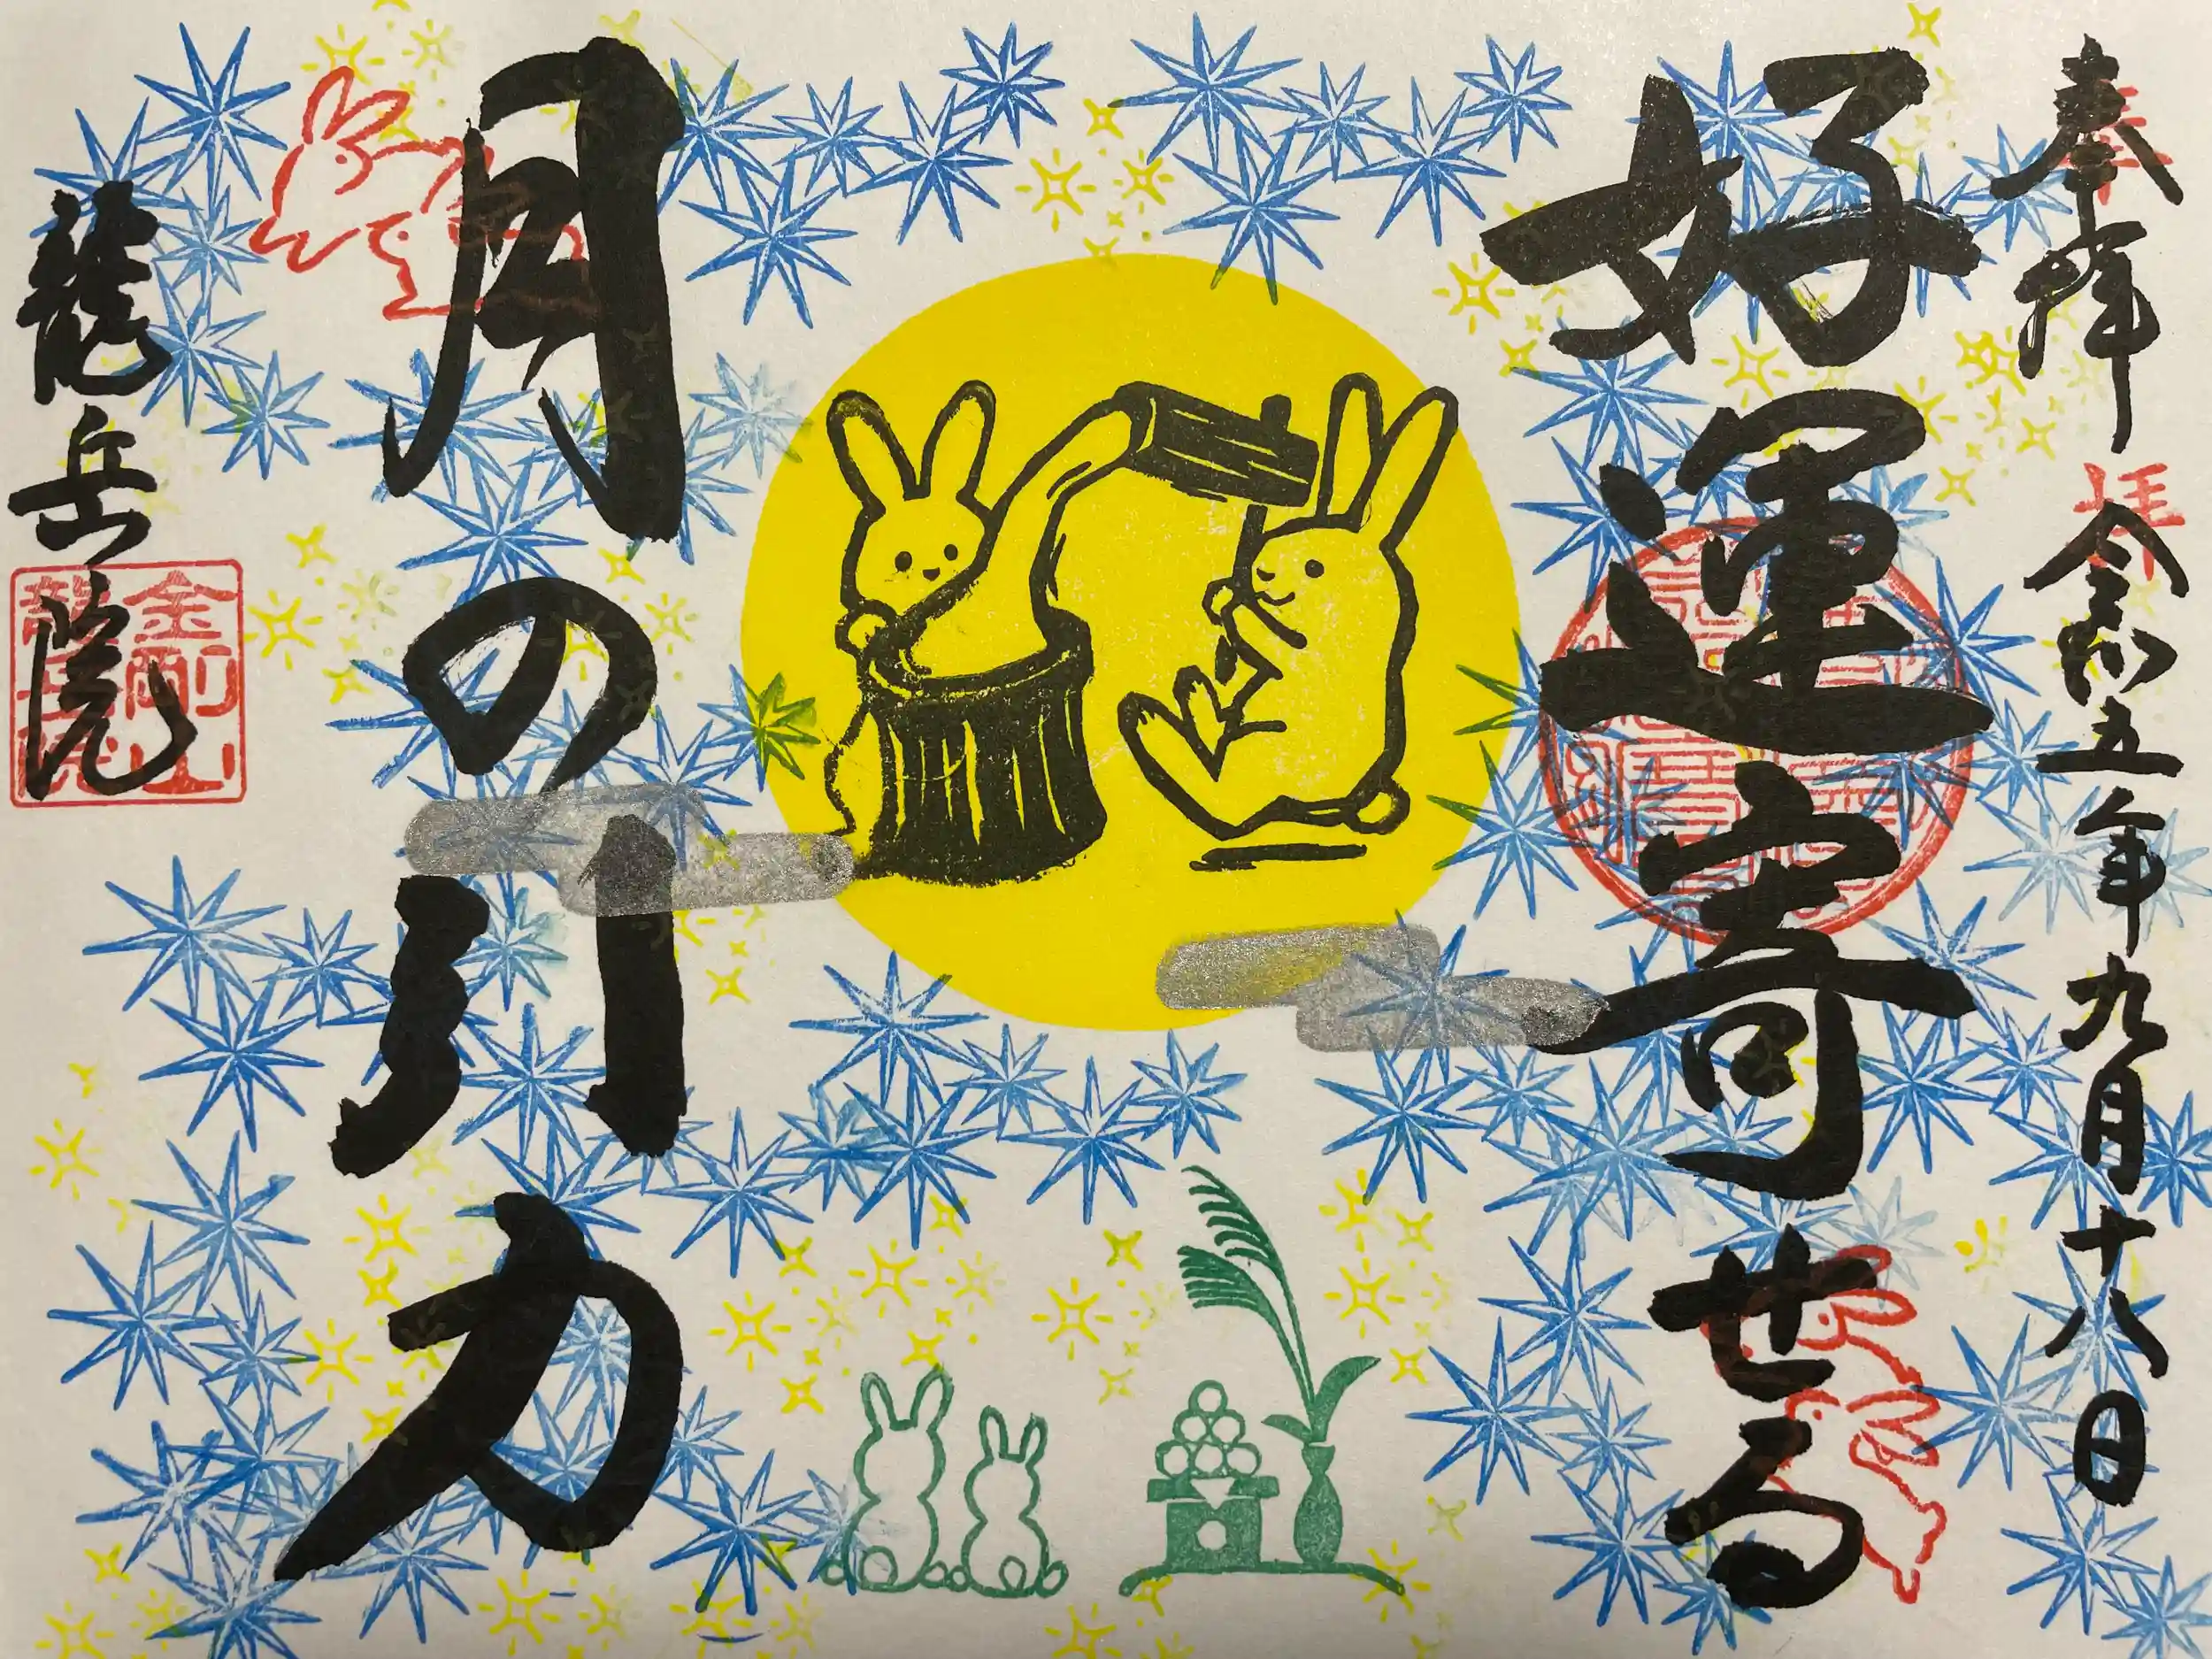 奉拝
令和五年九月十八日
好運寄せる
月の引力
龍岳院
奉
拝
金剛山
龍岳院